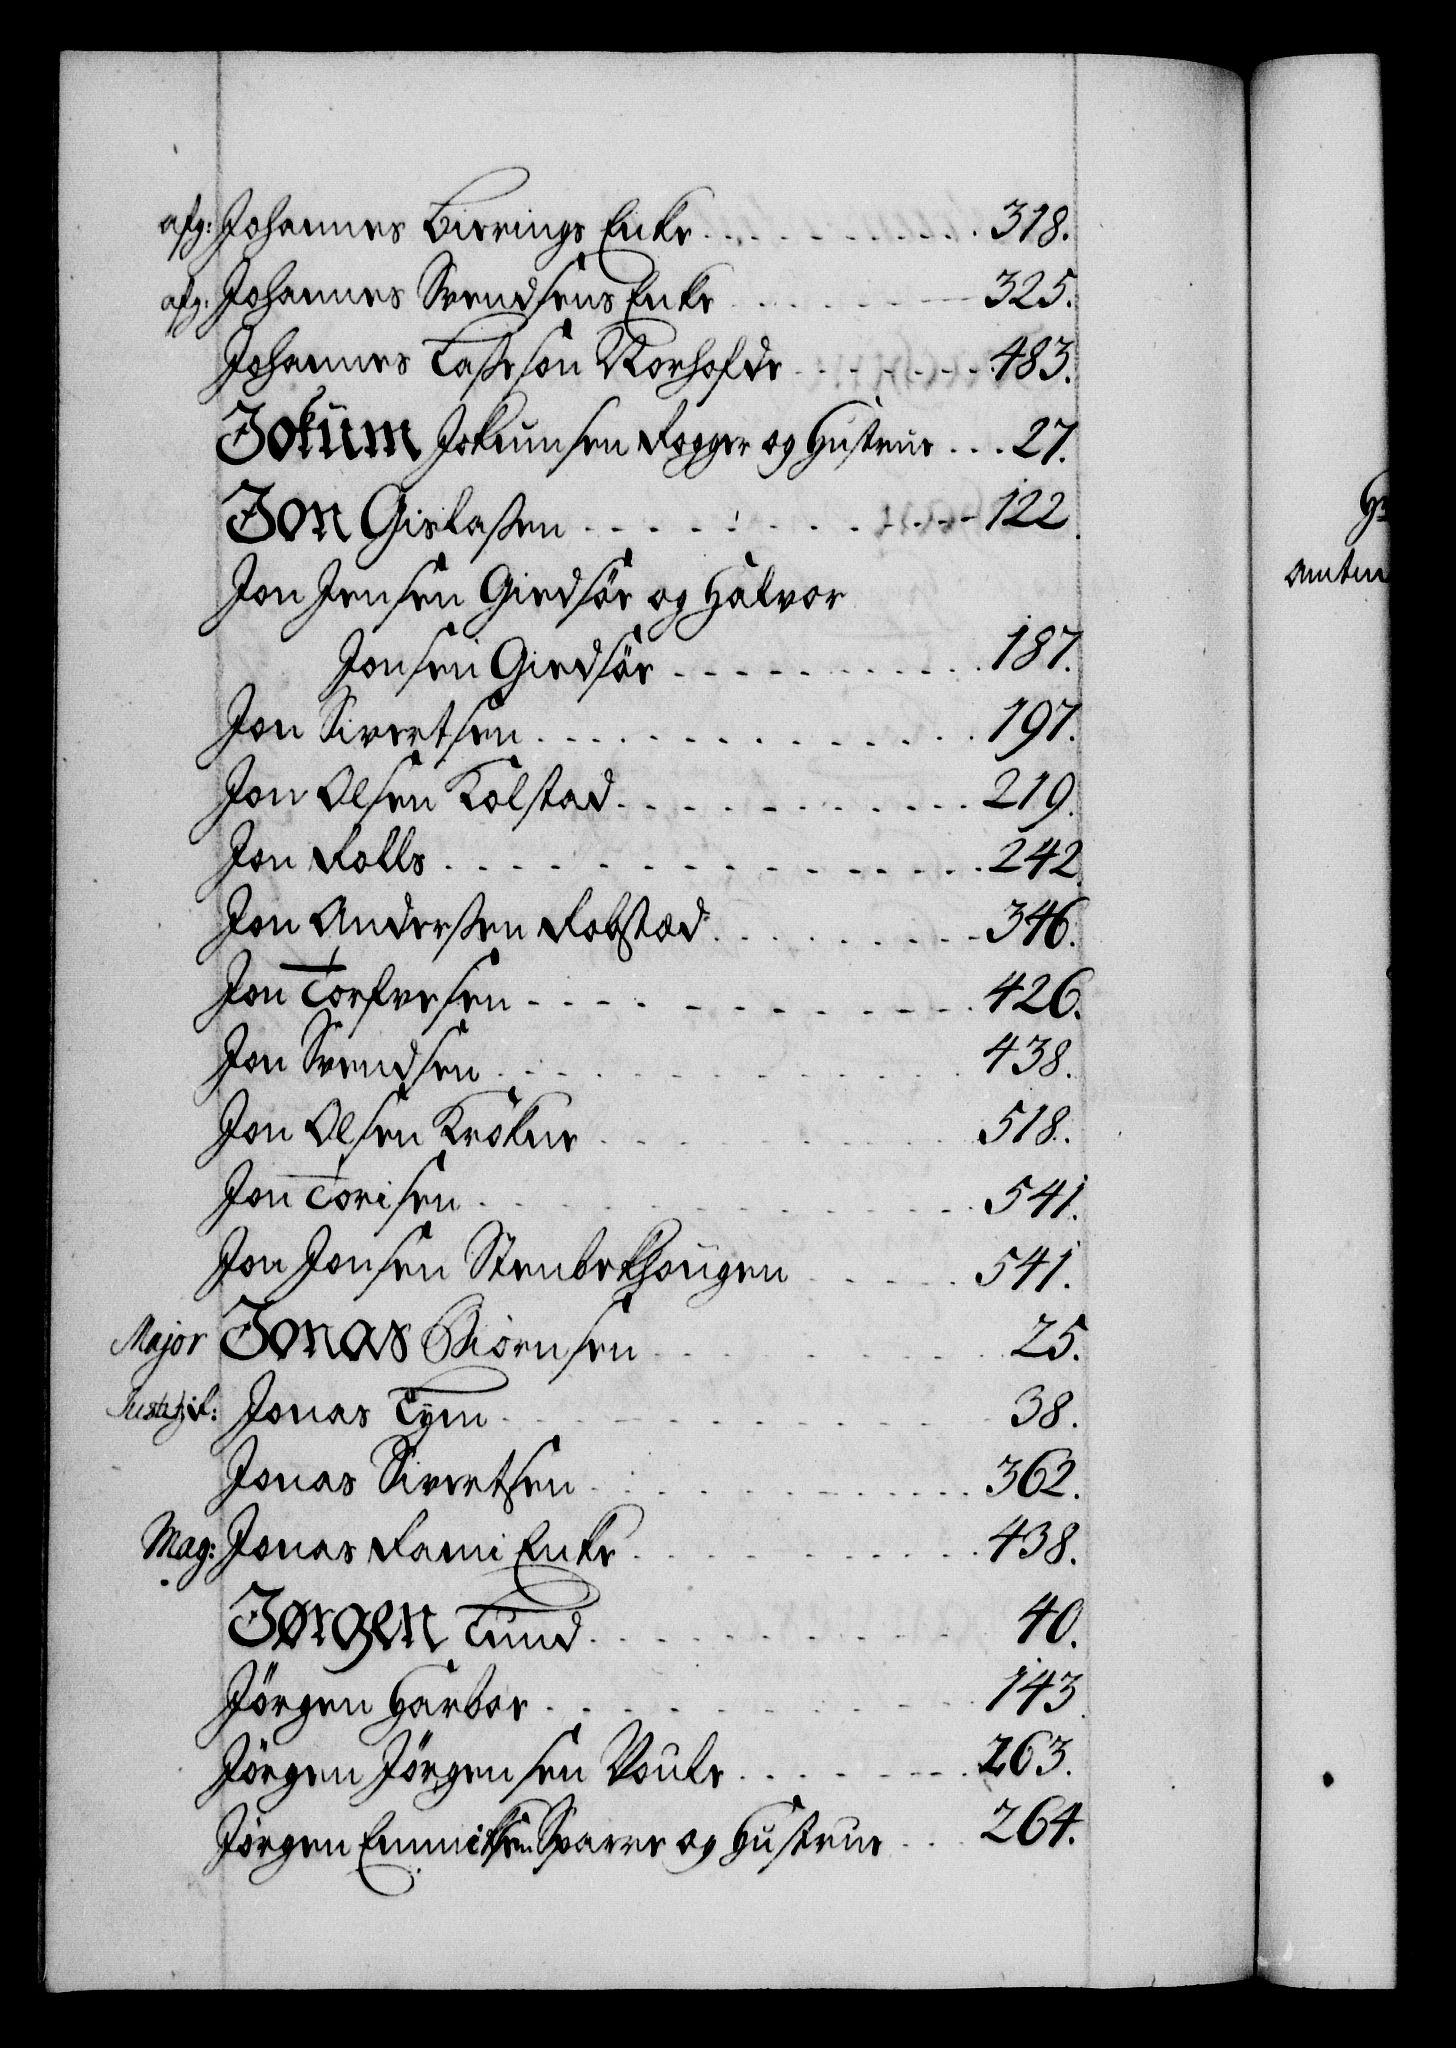 afg: Johannes Bierings Enke . . . . . . . . . 318.
afg: Johannes Svendsens Enke . . . . . . . 325.
Johannes Taßeson Norhofde . . . . . . . 483.
Jokum Jokumsen Fogger og Hustrue . . . 27.
Jon Gislaßen . . . . . . . . . . 122
Jon Jensen Giedsör og Halvor
Jonsen Giedsör . . . . . . . . . . 187.
Jon Sivertsen . . . . . . . . . . . 197.
Jon Olsen Kolstad . . . . . . . . . . 219.
Jon Folls . . . . . . . . . . . . 242.
Jon Anderßen Fobstad . . . . . . . . . 346.
Jon Torfvesen . . . . . . . . . . . 426.
Jon Svendsen . . . . . . . . . . . 438.
Jon Olsen Krökue . . . . . . . . . . 518.
Jon Torisen . . . . . . . . . . . 541.
Jon Jonsen Stenbekhougen . . . . . . 541.
Major Jonas Biörnsen . . . . . . . . . 25.
Jonas Tym . . . . . . . . . . . 38.
Jonas Sivertsen . . . . . . . . . . 362.
Mag: Jonas Rami Enke . . . . . . . . . 438.
Jørgen Lund . . . . . . . . . . 40.
Jörgen Harboe . . . . . . . . . . 143
Jörgen Jörgensen Woule . . . . . . . . 263.
Jörgen Emmiksen Svarre og Hustrue . . . 264.
amtm